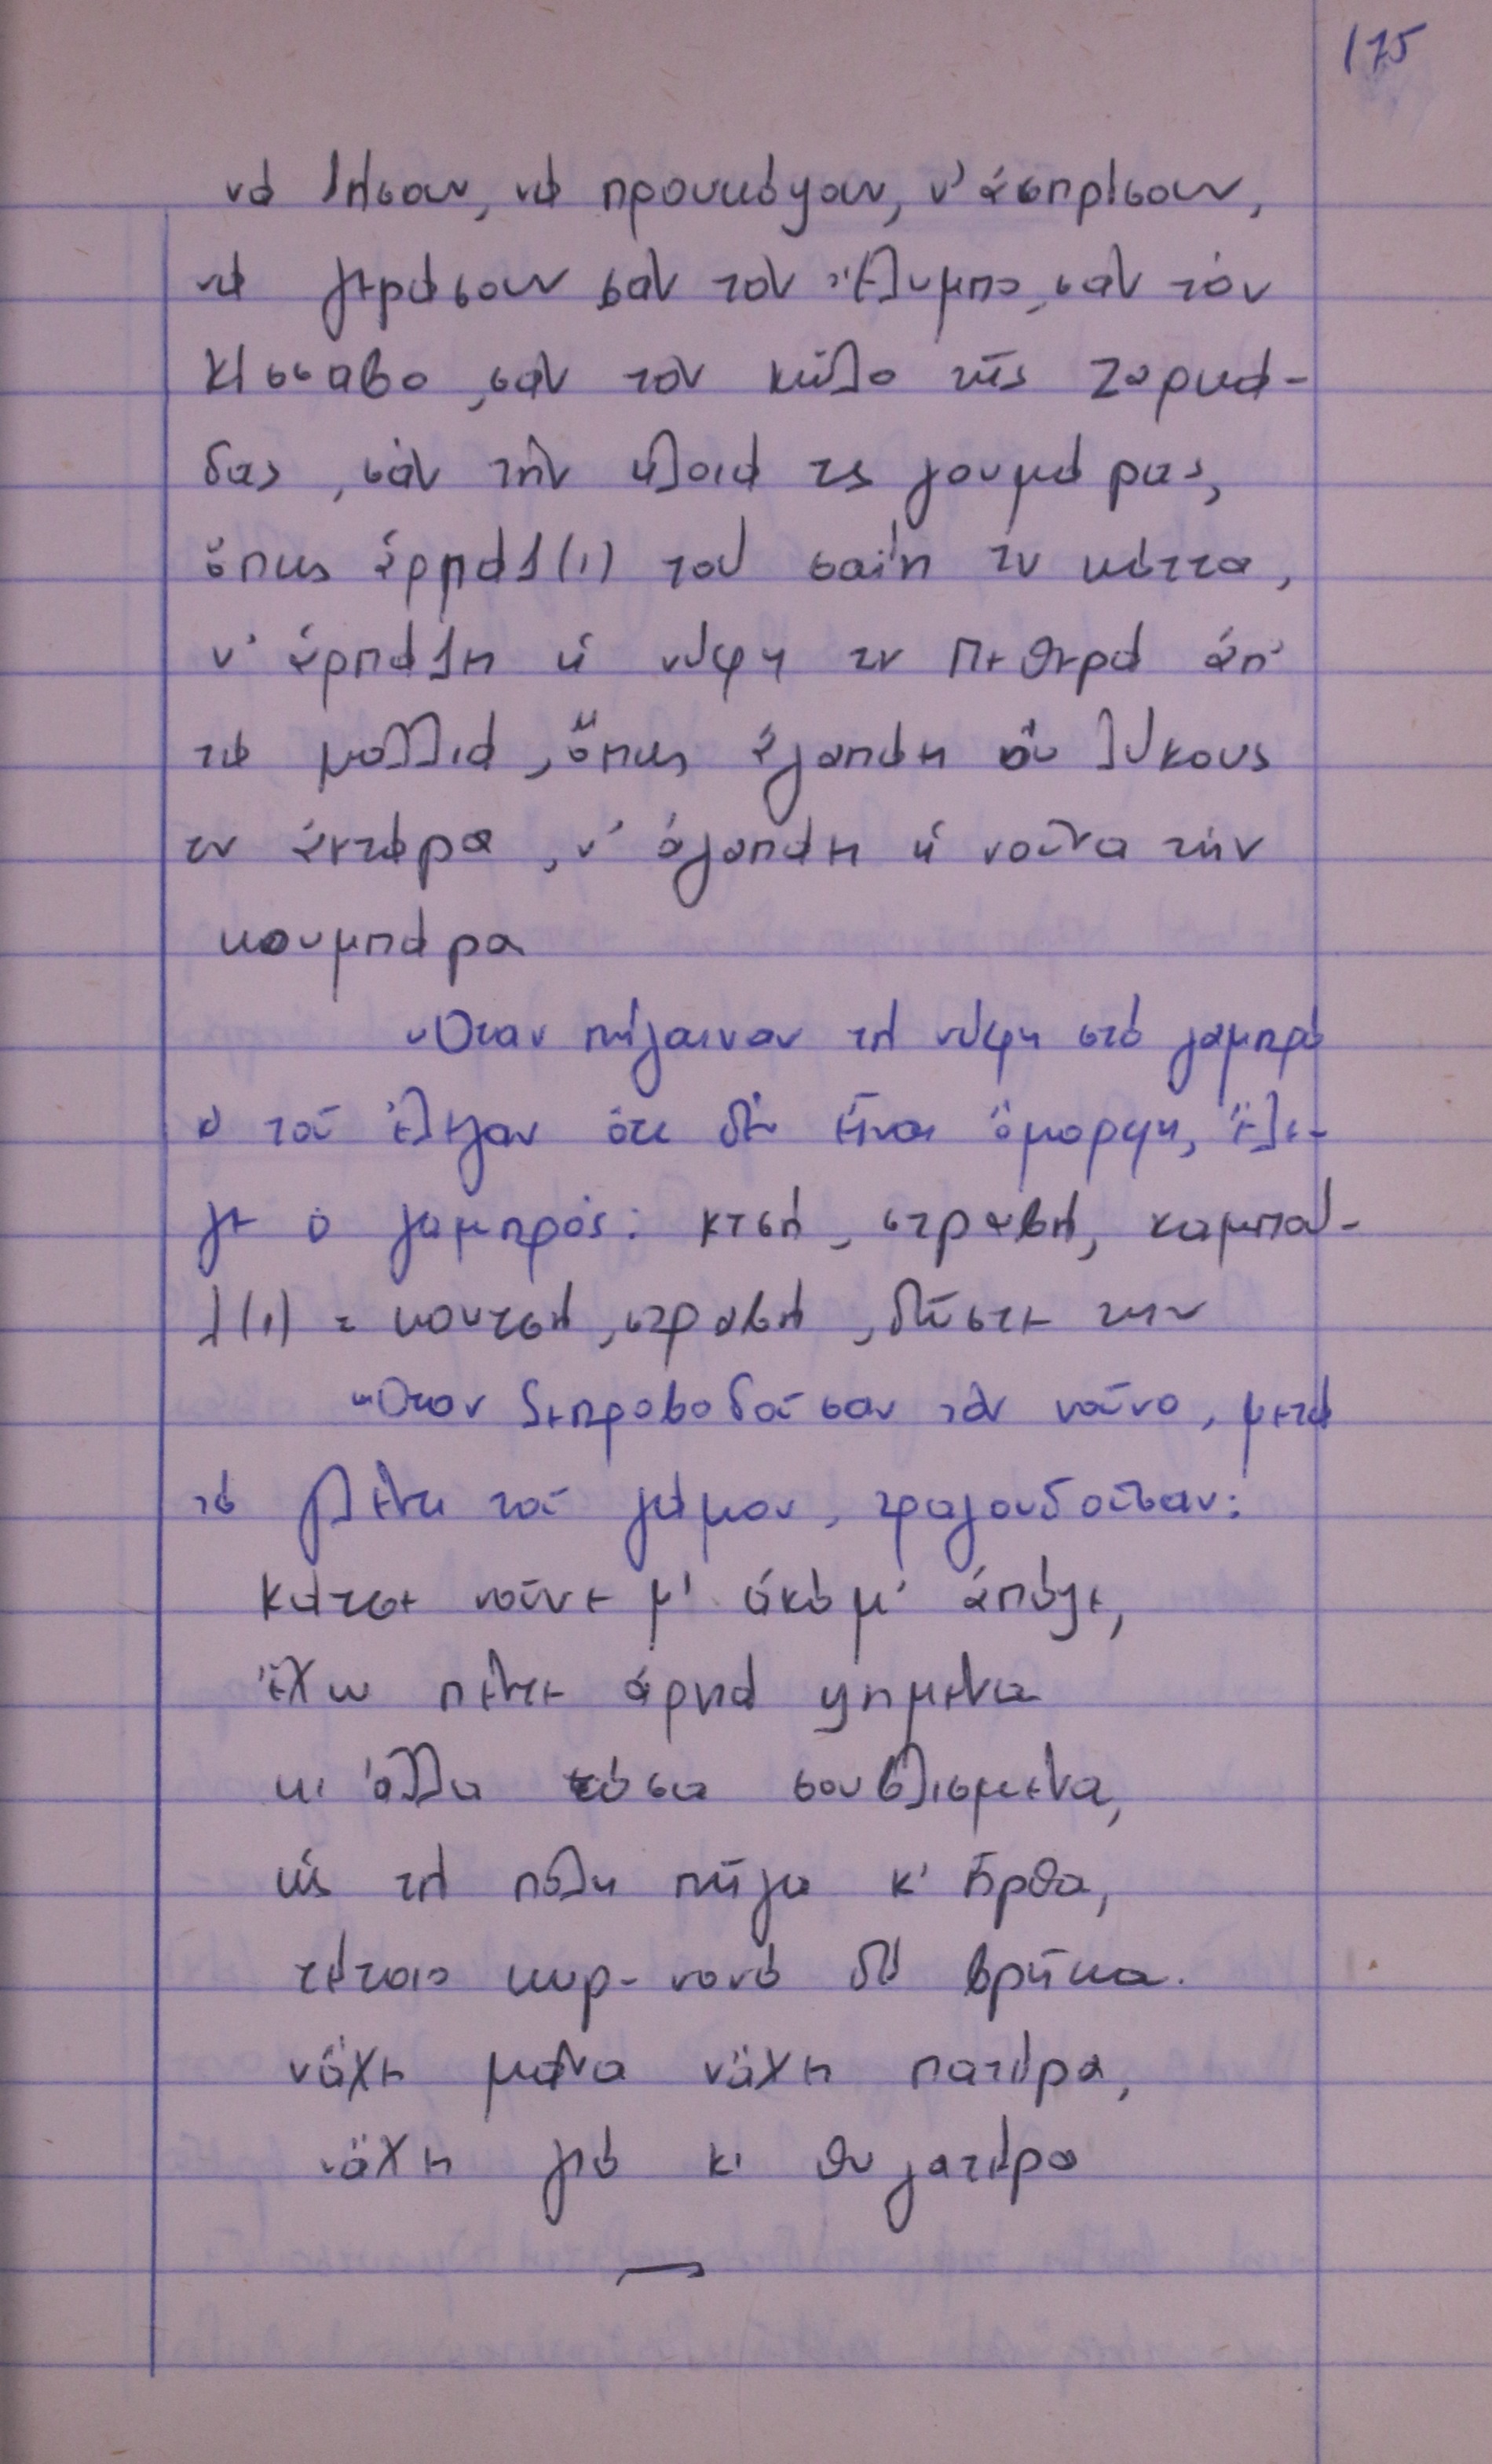 175
νά ζήσουν, νά προυκόψουν, ν' ἀσπρίσουν,
νά γεράσουν σάν τόν Ἔλυμπο, σάν τόν
Κίσσαβο, σάν τόν κῶλο τῆς ζαρκά-
δας, σάν τήν κλοιά τς γουμάρας,
ὅπως ἁρπάζ(ι) τού σαΐνι τν κόττα,
ν' ἁρπάζη ἡ νύφη τν Πεθερά ἀπ'
τά μαλλιά, ὅπως ἀγαπάη οὑ λύκους
τν , ν' ἀγαπάη ἡ νοῦνα τήν
κουμπάρα
Ὅταν πήγαιναν τή νύφη στό γαμπρό
κ τοῦ ἔλεγαν ὅτι δέν εἶναι ὄμορφη, ἔλε-
γε ὁ γαμπρός: κτσή, στραβή, καμπού-
λ(ι) = κουτσή, στραβή, δῶστε την
Ὅταν ξεπροβοδοῦσαν τόν νοῦνο, μετά
τό γλέντι τοῦ γάμου, τραγουδοῦσαν:
Κάτσε νοῦνε μ' ἀκόμ' ἀπόψε,
ἔχω πέντε ἀρνιά ψημένα
κι ἄλλα τόσα σουβλισμένα,
ὡς τή πόλη πῆγα κ' ἦρθα,
τέτοιο κυρ-νονό δέ βρῆκα.
νἄχη μάνα νἄχη πατέρα,
νἄχη γιό κι θυγατέρα